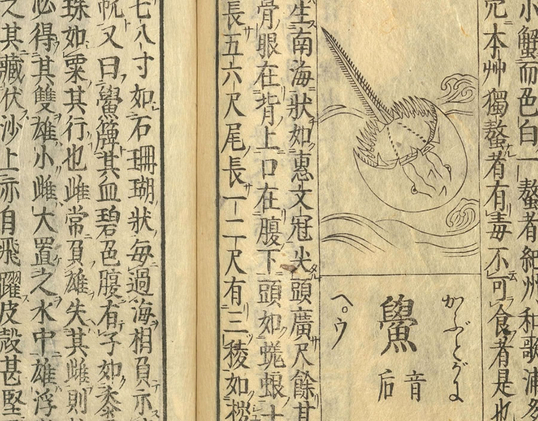 小蟹而色白一螯者紀州和歌浦多
兕本艸獨螯者有毒不可食者是也
かぶとがに
鱟
音后
ヘ。ウ
生南海狀如惠文冠尖頭廣尺餘甘
骨眼在背上口在腹下頭如蜣蜋十
長五六尺尾長一二尺有三稜如椶
七八寸如石珊瑚狀毎過海相負示
帆又曰鱟其血碧色腹有子如黍
珠如粟其行也雌常負雄失其雌則
必得其雙雄小雌大置之水中雄浮
之其藏伏沙上亦自飛躍皮殼甚堅